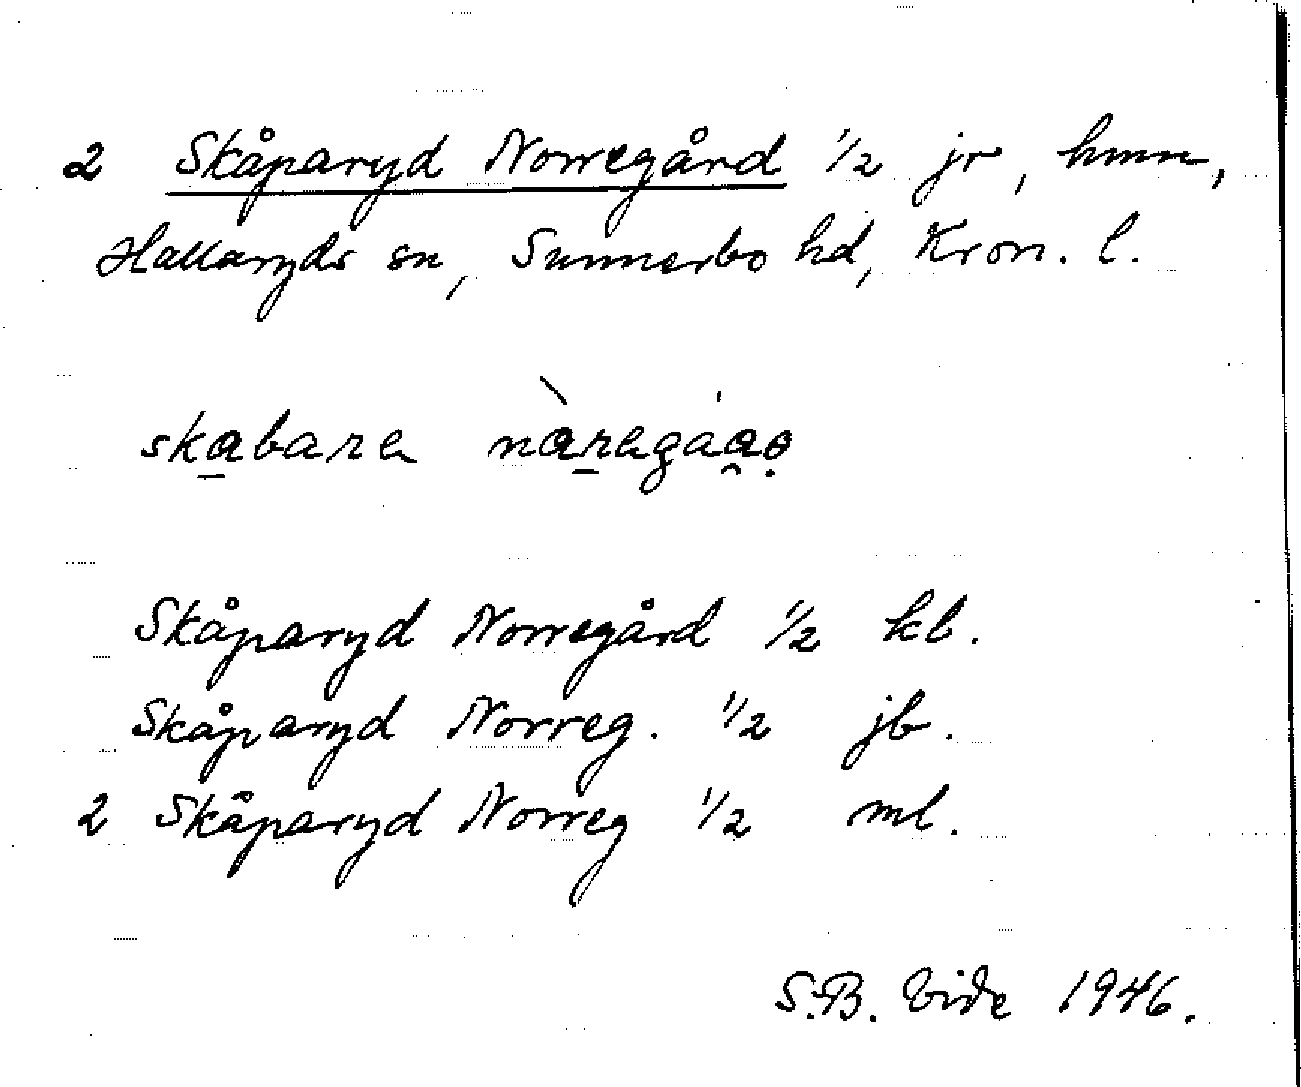 2 Skåparyd Norregård 1/2 jr, hmn,
Hallaryds sn, Sunnerbo hd, Kron. l.
Skåparyd Norregård 1/2 kb.
Skåparyd Norreg. 1/2 jb.
2 Skåparyd Norreg 1/2 ml.
S.B. Vide 1946.